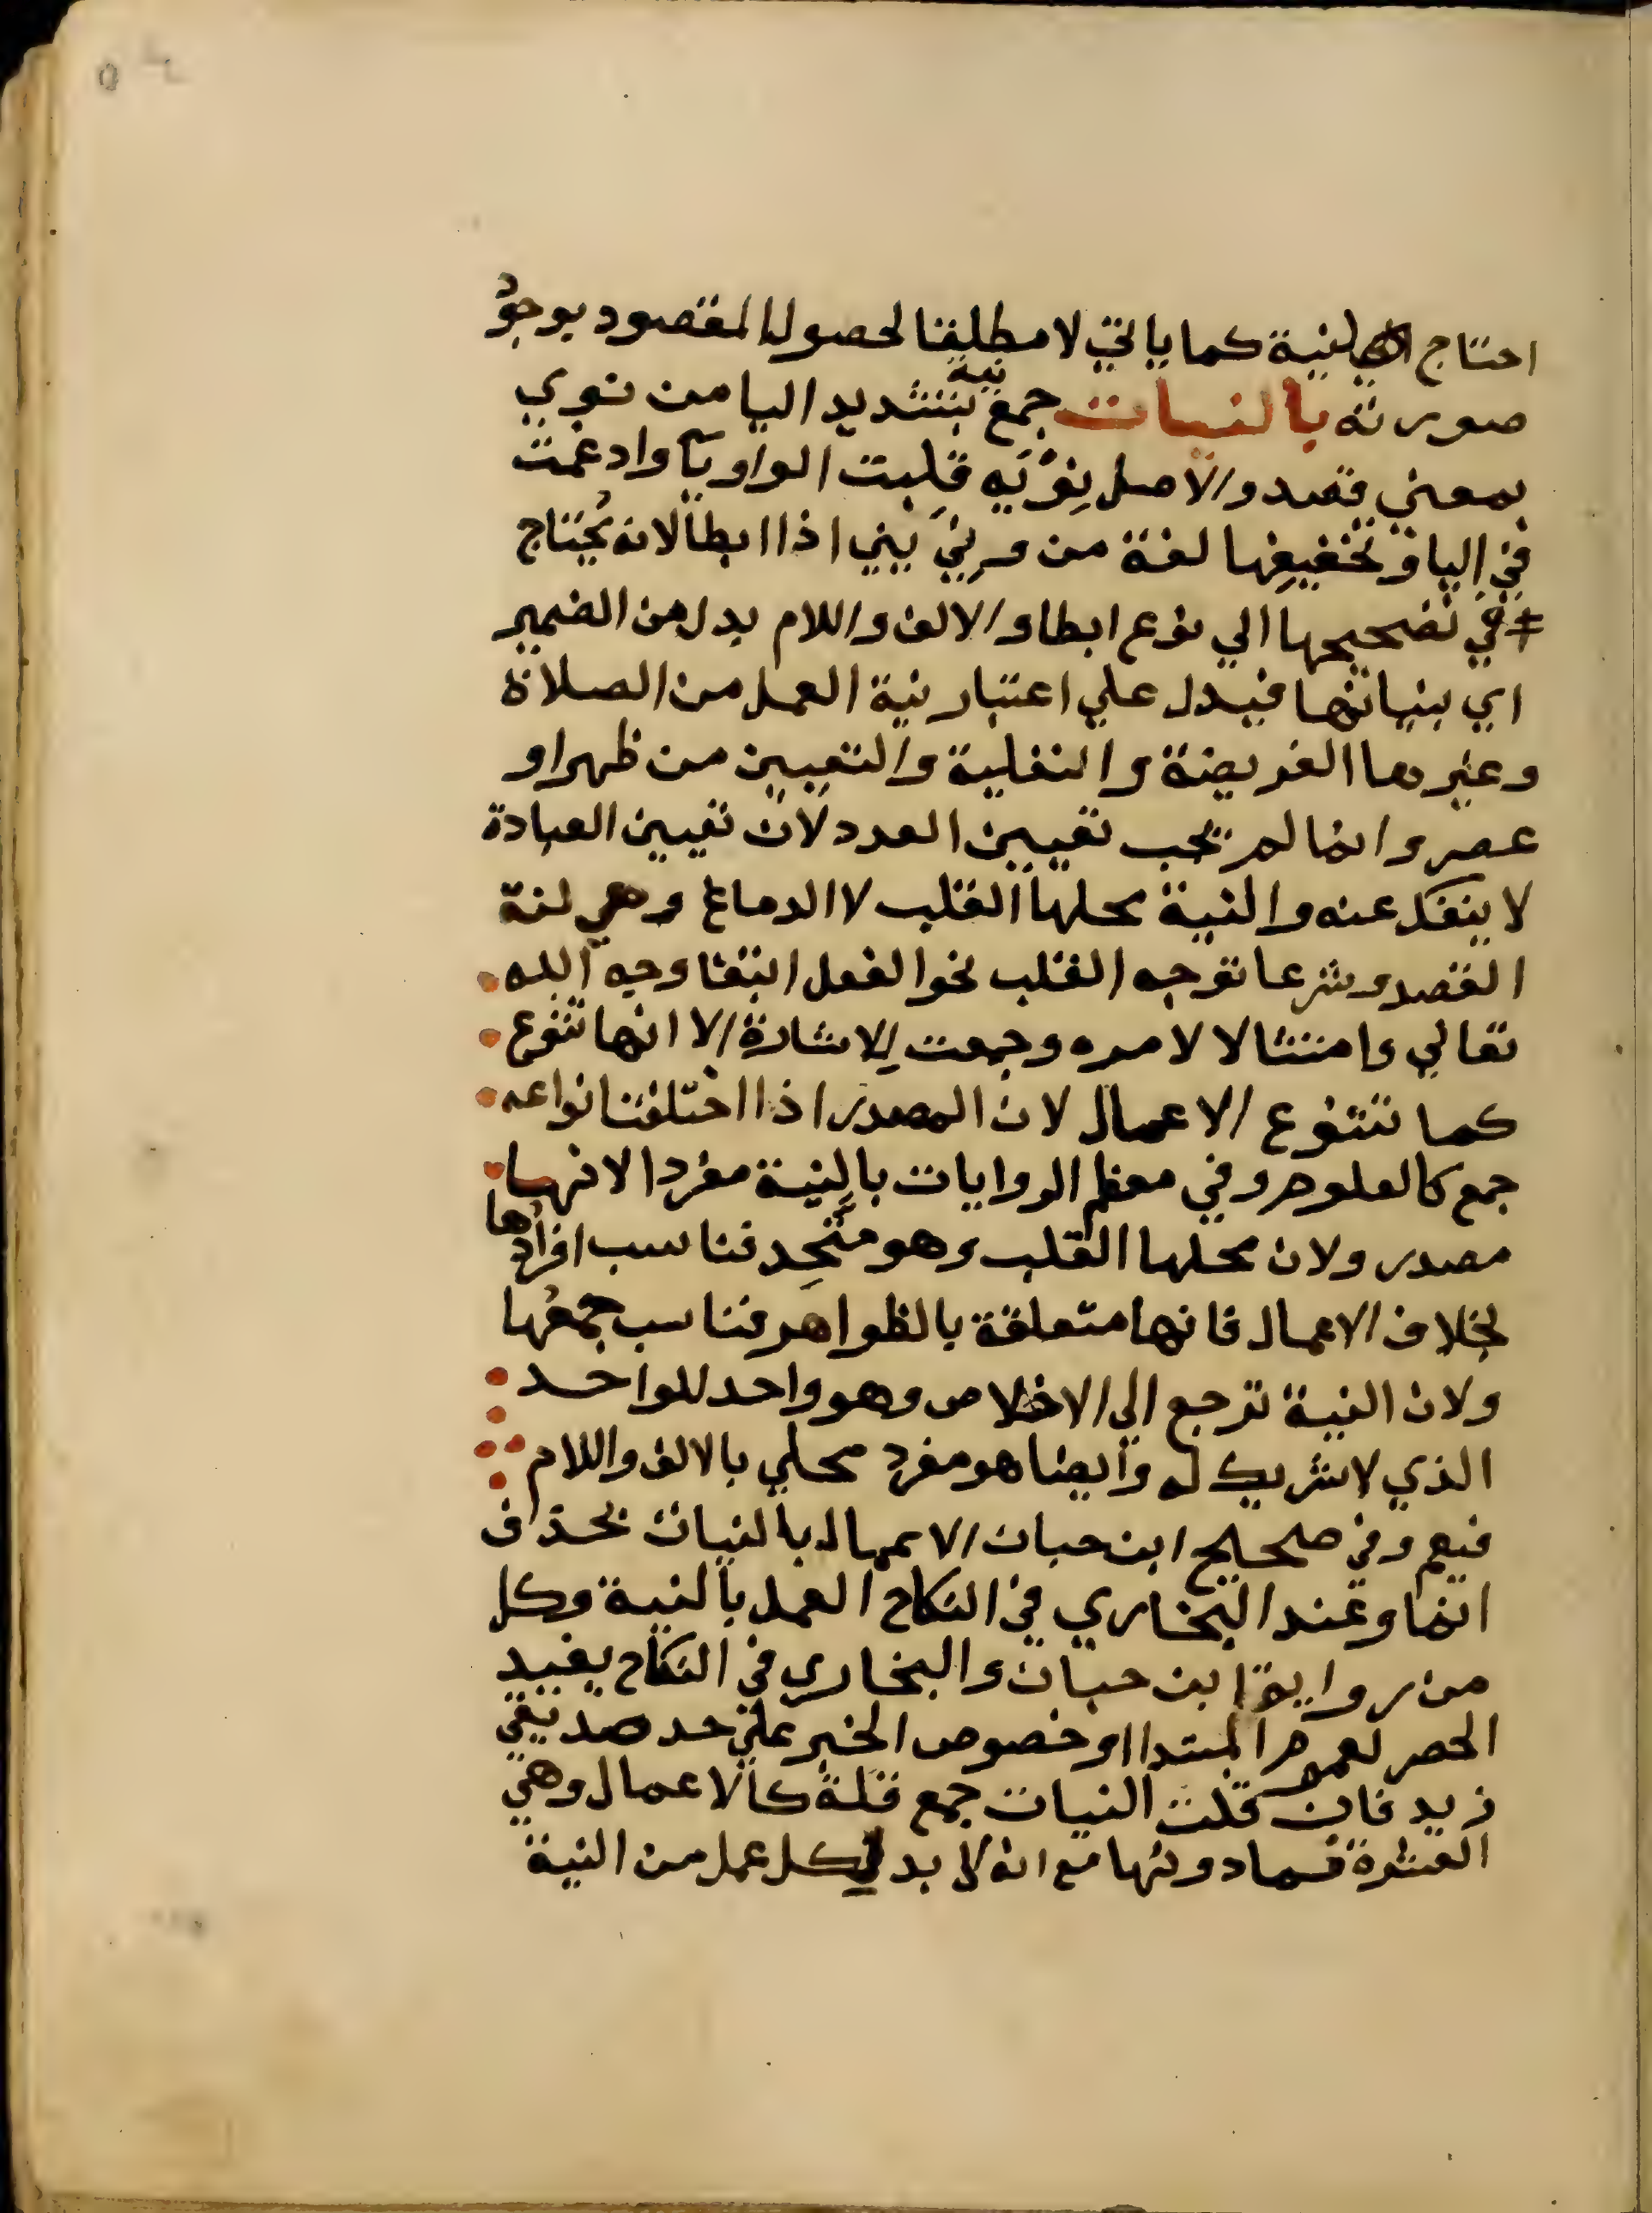 احتاج لنية كما ياتي لا مطلقا لحصول المقصود بوجود
صورته بالنيات جمع نية بتشديد اليا من نوي
بمعني قصد والاصل نِوْيَه قلبت الواو يآ وادغمت
في اليا وتخفيفها لغة من وني يني اذا ابطا لانه يُحتاج
في تصحيحها الي نوع ابطا والالف واللام بدل من الضمير
اي بنياتها فيدل علي اعتبار نية العمل من الصلاة
وغيرها الفريضة والنفلية والتعيين من ظهر او
عصر وانما لم يجب تعيين العدد لان تعيين العبادة
لا ينفك عنه والنية محلها القلب لا الدماغ وهي لغة
القصد وشرعا توجه القلب نحو الفعل ابتغا وجه الله
تعالي وامتثالا لامره وجمعت للاشارة الا انها تتنوع
كما تتنوع الاعمال لان المصدر اذا اختلفت انواعه
جمع كالعلوم وفي معظم الروايات بالنية مفردا لانها
مصدر ولان محلها القلب وهو متَّحِد فناسب افرادها
بخلاف الاعمال فانها متعلقة بالظواهر فناسب جمعُها
ولان النية ترجع الي الاخلاص وهو واحد للواحد
الذي لا شريك له وايضا هو مفرد محلي بالالف واللام
فيعم وفي صحيح ابن حبان الاعمال بالنيات بحذف
انما وعند البخاري في النكاح العمل بالنية وكل
من رواية ابن حبان والبخاري في النكاح يفيد
الحصر لعموم المبتدا او خصوص الخبر علي حد صديقي
زيد فان قلت النيات جمع قلة كالاعمال وهي
العشرة فما دونها مع انه لا بد لكل عمل من النية